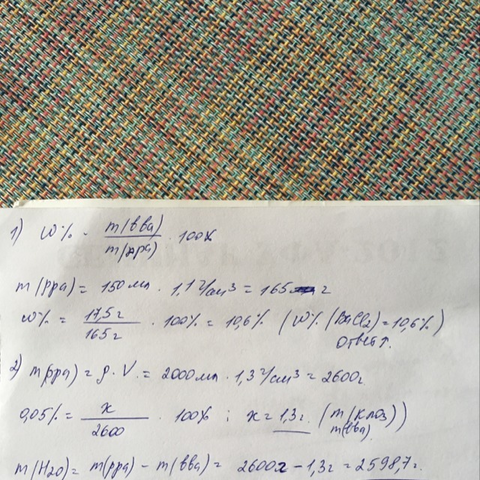 1) W% = m(вва) / m(рра) · 100%
m(рра) = 150мл · 1,1 г/см³ = 165 г
W% = 17,5г / 165г · 100% = 10,6% (W%(BaCl2) = 10,6%)
Ответ.
2) m(рра) = ρ · V = 2000мл · 1,3 г/см³ = 2600г
0,05% = x / 2600 · 100% ; x = 1,3г. (m(KNO3))
m(вва)
m(H2O) = m(рра) - m(вва) = 2600г - 1,3г = 2598,7г.